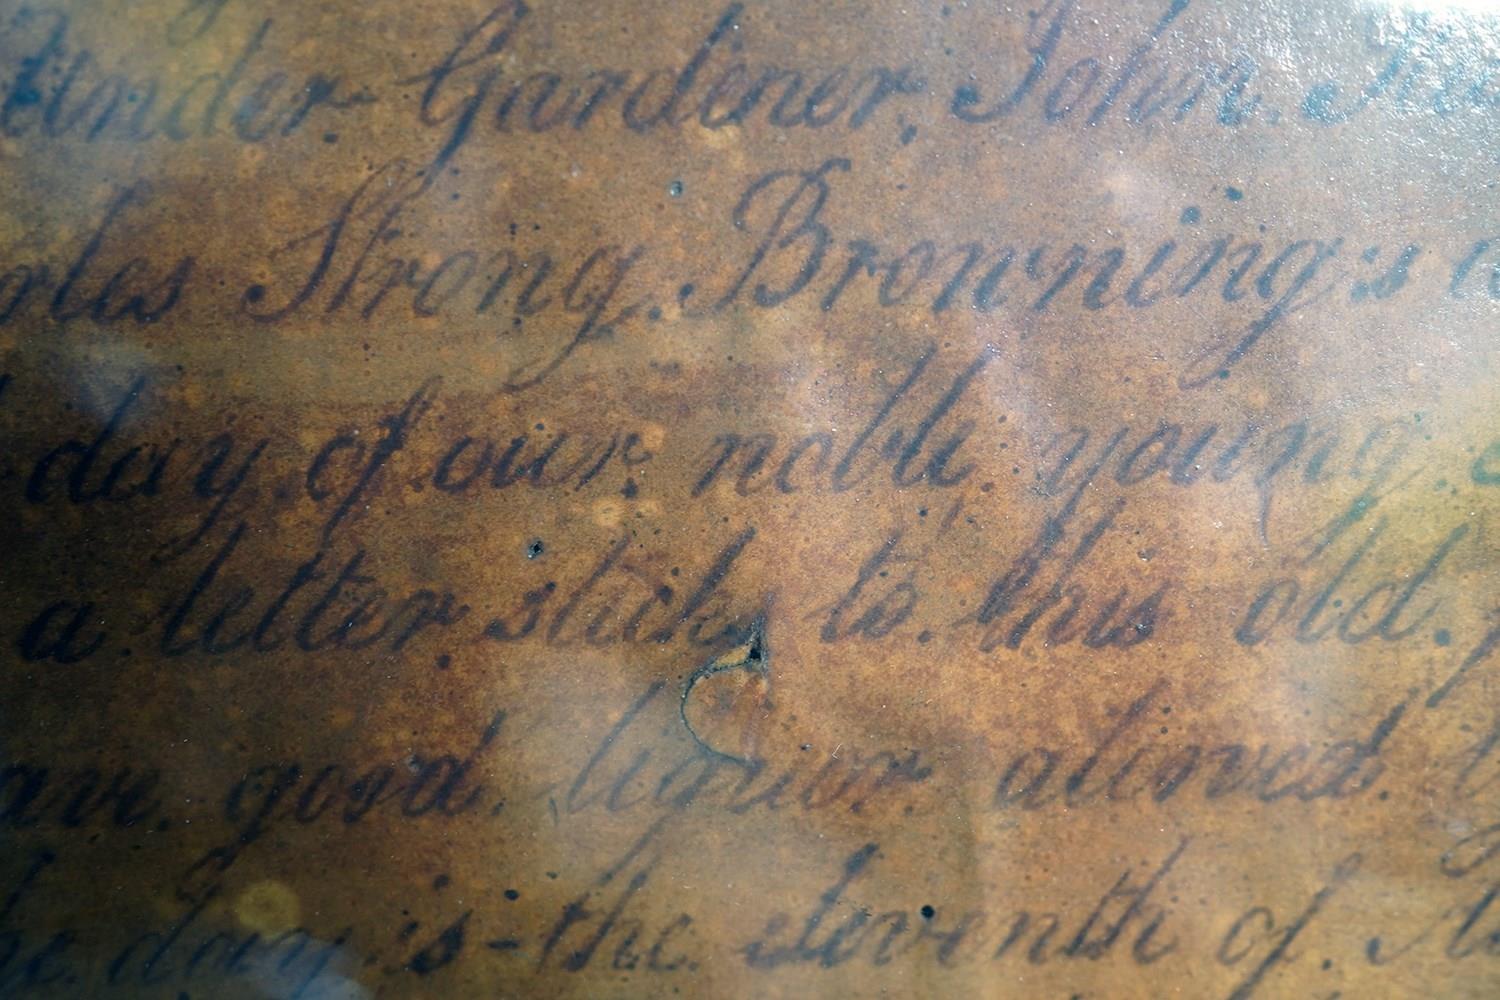 Under Gardener, John.
Strong. Browning's
day of our noble young
a letter stick to. this old.
good. liquor alowed.
day is - the. Seventh of